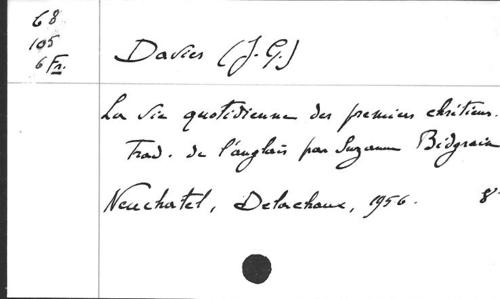 68
105
6 Fr.
Davies (J. G.)
La vie quotidienne des premiers chrétiens.
Trad. de l'anglais par Suzanne Bidgrain
Neuchatel, Delachaux, 1956. 8°